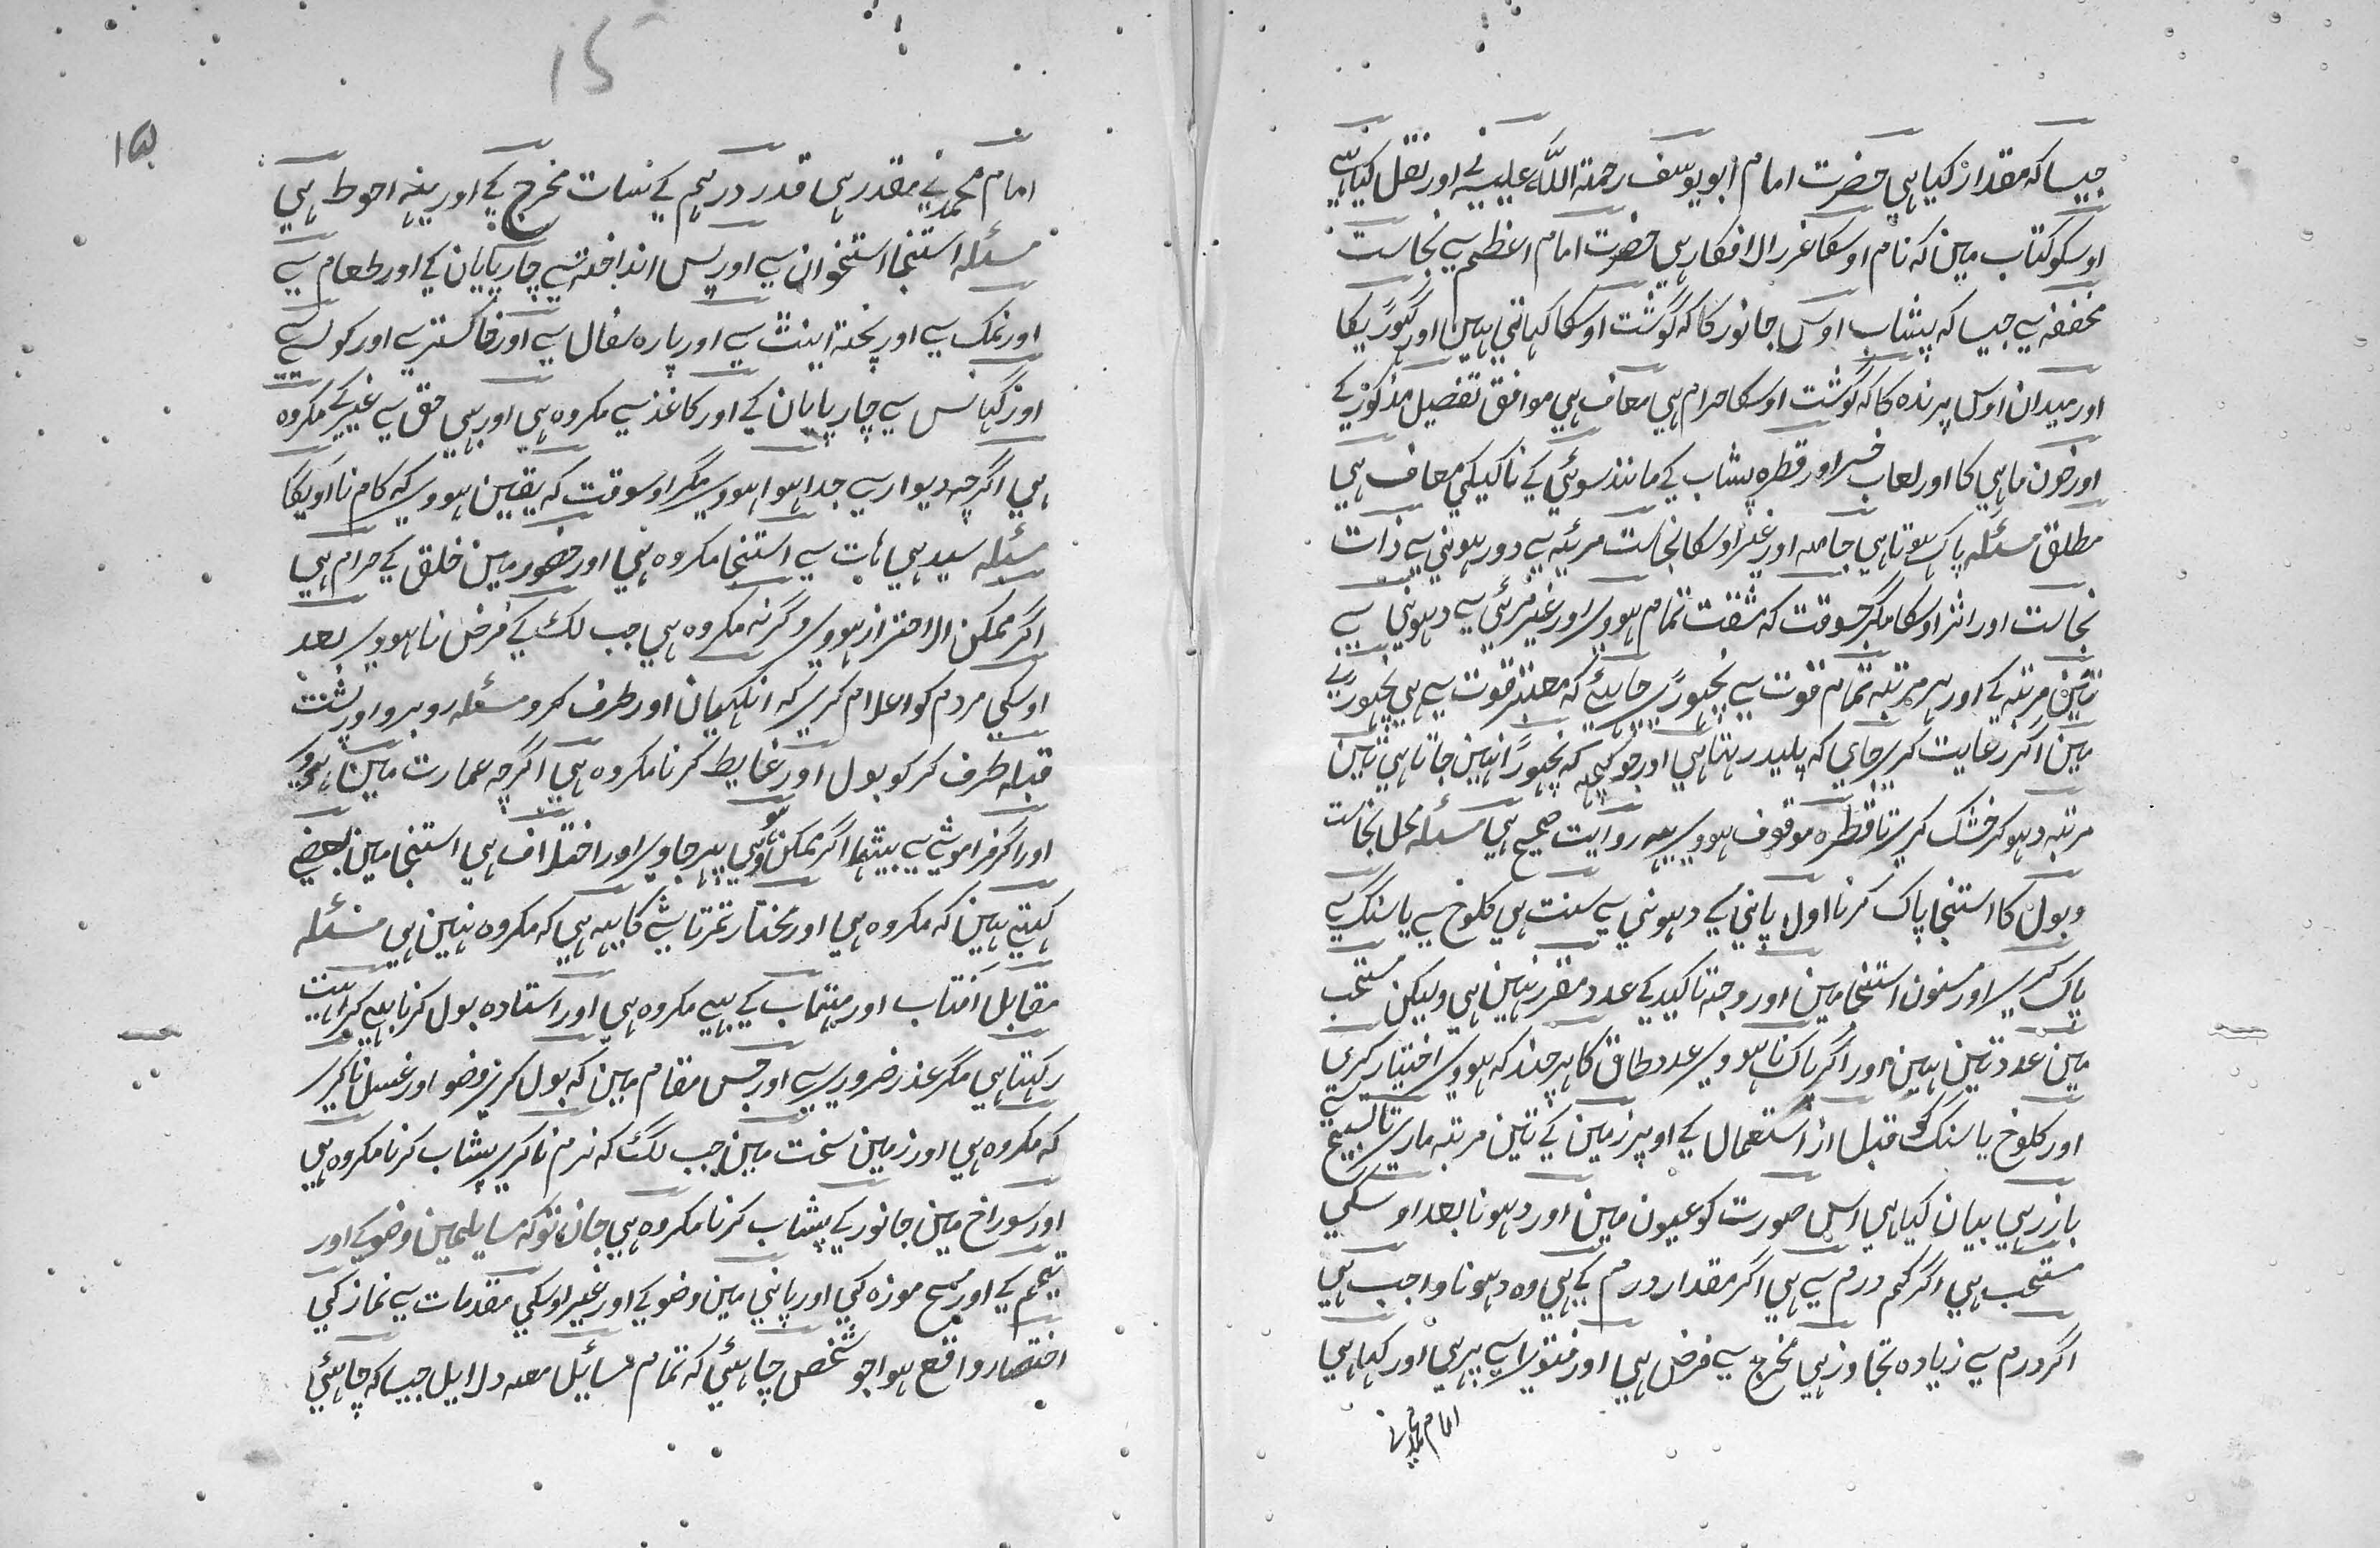 جیسا کہ مقدار کیا ہی حضرت امام ابو یوسف رحمۃ اللہ علیہ نے اور نقل کیا ہی
اوسکو کتاب مین کہ نام اوسکا غرر الافکار ہی حضرت امام اعظم سے نجاست
مخففہ سے جیسا کہ پیشاب اوس جانور کا کہ گوشت اوسکا کہاتی ہین اور گہوڑیکا
اور میدان اوس پرندہ کا کہ گوشت اوسکا حرام ہی معاف ہی موافق تفصیل مذکور کے
اور خون ماہی کا اور لعاب خر اور قطرہ پیشاب کے مانند سوئی کے ناکیکی معاف ہی
مطلق مسئلہ پاک ہوتا ہی جامہ اور غیر اوسکا نجاست مرئیہ سے دور ہونی سے ذات
نجاست اور اثر اوسکا مگر جسوقت کہ مشقت تمام ہووے اور غیر مرئی سے دہونی سے
تین مرتبہ کے اور ہر مرتبہ تمام قوت سے نچوڑے چاہئے کہ معتبر قوت سے ہی نچوڑنے
مین اگر رعایت کرے جای کہ پلید رہتا ہی اور جو کہ نچوڑا نہین جاتا ہی تین
مرتبہ دہو کر خشک کرے تا قطرہ موقوف ہووے یہہ روایت صحیح ہی مسئلہ محل نجاست
و بول کا استنجا پاک کرنا اول پانی کے دہونی سے سنت ہی کلوخ سے یا سنگ سے
پاک کرے اور مسنون استنجا مین اور وجہ تاکید کے عدد مقرر نہین ہی ولیکن مستحب
مین عدد تین ہین اور اگر پاک نا ہووے عدد طاق کا ہر چند کہ ہووے اختیار کری
اور کلوخ یا سنگ کو قبل از استعمال کے اوپر زمین کے تین مرتبہ مارے تا تسبیح سے
باز رہی بیان کیا ہی اس صورت کو عیون مین اور دہونا بعد اوسکی
مستحب ہی اگر کم درم سے ہی اگر مقدار درم کے ہی وہ دہونا واجب ہی
اگر درم سے زیادہ تجاوز ہی مخرج سے فرض ہی اور فتوی اسے پر ہی اور کہا ہی
امام محمد نے
15
۱۵
امام محمد نے مقدر ہی قدر درہم کے نسات مخرج کے اور یہہ احوط ہی
مسئلہ استنجا استخوان سے اور پس انداختہ سے چارپایان کے اور طعام سے
اور نمک سے اور پختہ اینٹ سے اور پارہ سفال سے اور خاکستر سے اور کولسے سے
اور گہانس سے چارپایان کے اور کاغذ سے مکروہ ہی اور ہی حق سے غیر کے مکروہ
ہی اگرچہ دیوار سے جدا ہوا ہووے مگر اوسوقت کہ یقین ہووے کہ کام نا آویگا
مسئلہ سیدہی ہات سے استنجا مکروہ ہی اور حضور مین خلق کے حرام ہی
اگر ممکن الاحتراز ہووے وگرنہ مکروہ ہی جب لک کے فرض نا ہووے بعد
اوسکی مردم کو اعلام کرے کہ انکہیان اور طرف کرو مسئلہ روبرو اور پشت
قبلہ طرف کر کو بول اور غایط کرنا مکروہ ہی اگرچہ عمارت مین ہووے
اور اگر فراموشے سے بیٹہا اگر ممکن ہووے تو پہر جاوے اور اختلاف ہی استنجا مین بعضے
کہتے ہین کہ مکروہ ہی اور مختار تمرتاشے کا یہہ ہی کہ مکروہ نہین ہی مسئلہ
مقابل آفتاب اور مہتاب کے بہے مکروہ ہی اور استادہ بول کرنا بہے کراہیت
رکہتا ہی مگر عذر ضروری سے اور جس مقام مین کہ بول کرے وضو اور غسل نا کرے
کہ مکروہ ہی اور زمین سخت مین جب لگ کہ نرم نا کرے پیشاب کرنا مکروہ ہی
اور سوراخ مین جانور کے پیشاب کرنا مکروہ ہی جان تو کہ مسایلمین وضو کے اور
تیمم کے اور مسح موزہ کی اور پانی مین وضو کے اور غیر اوسکی مقدمات سے نماز کی
اختصار واقع ہوا جو شخص چاہئی کہ تمام مسائیل معہ دلایل جیسا کہ چاہئی